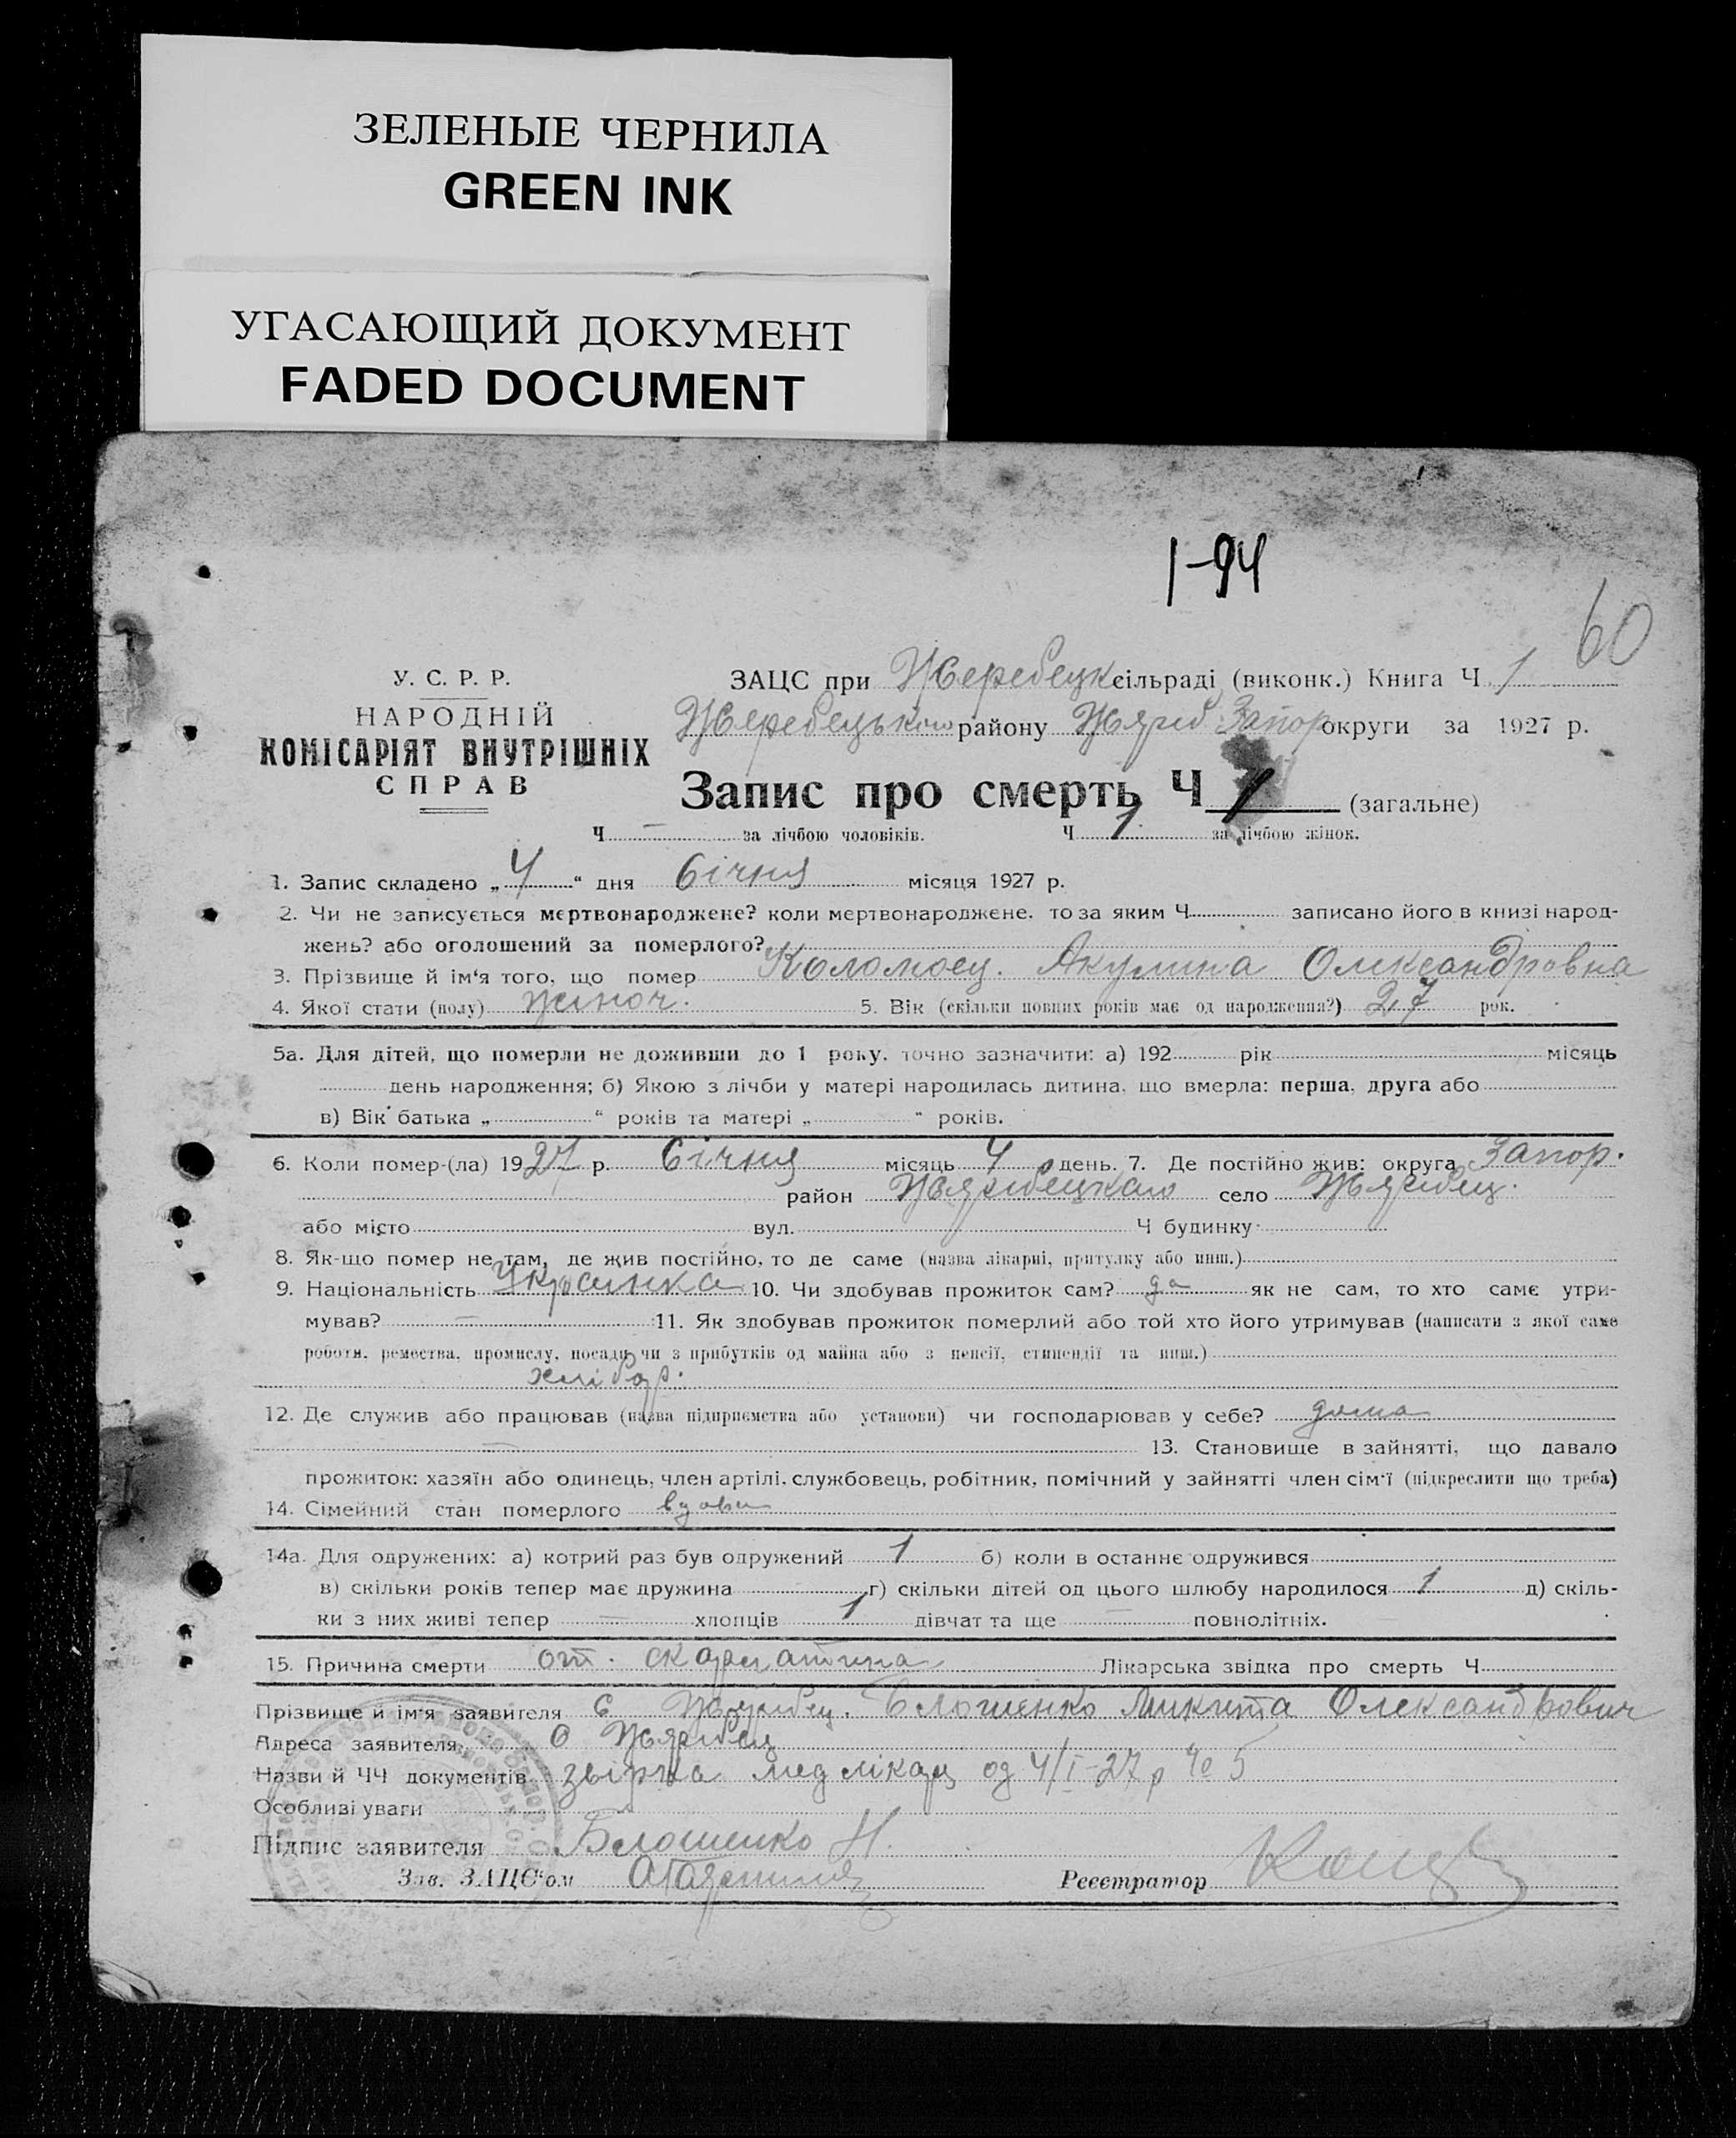 ЗЕЛЕНЫЕ ЧЕРНИЛА
GREEN INK
УГАСАЮЩИЙ ДОКУМЕНТ
FADED DOCUMENT
1-94
60
У. С. Р. Р.
НАРОДНІЙ
КОМІСАРІЯТ ВНУТРІШНІХ
СПРАВ
ЗАЦС при Жеребецк сільраді (виконк.) Книга Ч 1
Жеребецького району Запор округи за 1927 р.
Запис про смерть Ч 1 (загальне)
Ч — за лічбою чоловіків. Ч 1 за лічбою жінок.
1. Запис складено „ 4 “ дня Січня місяця 1927 р.
2. Чи не записується мертвонароджене? коли мертвонароджене, то за яким Ч записано його в книзі народ-
жень? або оголошений за померлого?
3. Прізвище й ім'я того, що помер Коломоец. Акулина Олександровна
4. Якої стати (полу) жіноч. 5. Вік (скільки повних років має од народження?) 27 рок.
5а. Для дітей, що померли не доживши до 1 року, точно зазначити: а) 192 рік місяць
день народження; б) Якою з лічби у матері народилась дитина, що вмерла: перша, друга або
в) Вік батька „ “ років та матері „ “ років.
6. Коли помер-(ла) 1927 р. Січня місяць 4 день. 7. Де постійно жив: округа Запор.
район Жеребецкого село Жеребец.
або місто вул. Ч будинку
8. Як-що помер не там, де жив постійно, то де саме (назва лікарні, притулку або инш.)
9. Національність Українка 10. Чи здобував прожиток сам? да як не сам, то хто саме утри-
мував? — 11. Як здобував прожиток померлий або той хто його утримував (написати з якої саме
роботи, ремества, промислу, посади чи з прибутків од майна або з пенсії, стипендії та инш.)
хлібор.
12. Де служив або працював (назва підприємства або установи) чи господарював у себе? дома
— 13. Становище в зайнятті, що давало
прожиток: хазяїн або одинець, член артілі, службовець, робітник, помічний у зайнятті член сім'ї (підкреслити що треба)
14. Сімейний стан померлого вдова
14а. Для одружених: а) котрий раз був одружений 1 б) коли в останнє одружився
в) скільки років тепер має дружина г) скільки дітей од цього шлюбу народилося 1 д) скіль-
ки з них живі тепер — хлопців 1 дівчат та ще — повнолітніх.
15. Причина смерти от. скарлатина Лікарська звідка про смерть Ч
Прізвище й ім'я заявителя с Жеребец. Белошенко Микита Олександрович
Адреса заявителя с Жеребец
Назви й ЧЧ документів мед лікар од 4/I-27 р № 5
Особливі уваги
Підпис заявителя Белошенко Н.
Зав. ЗАЦС'ом
Реєстратор